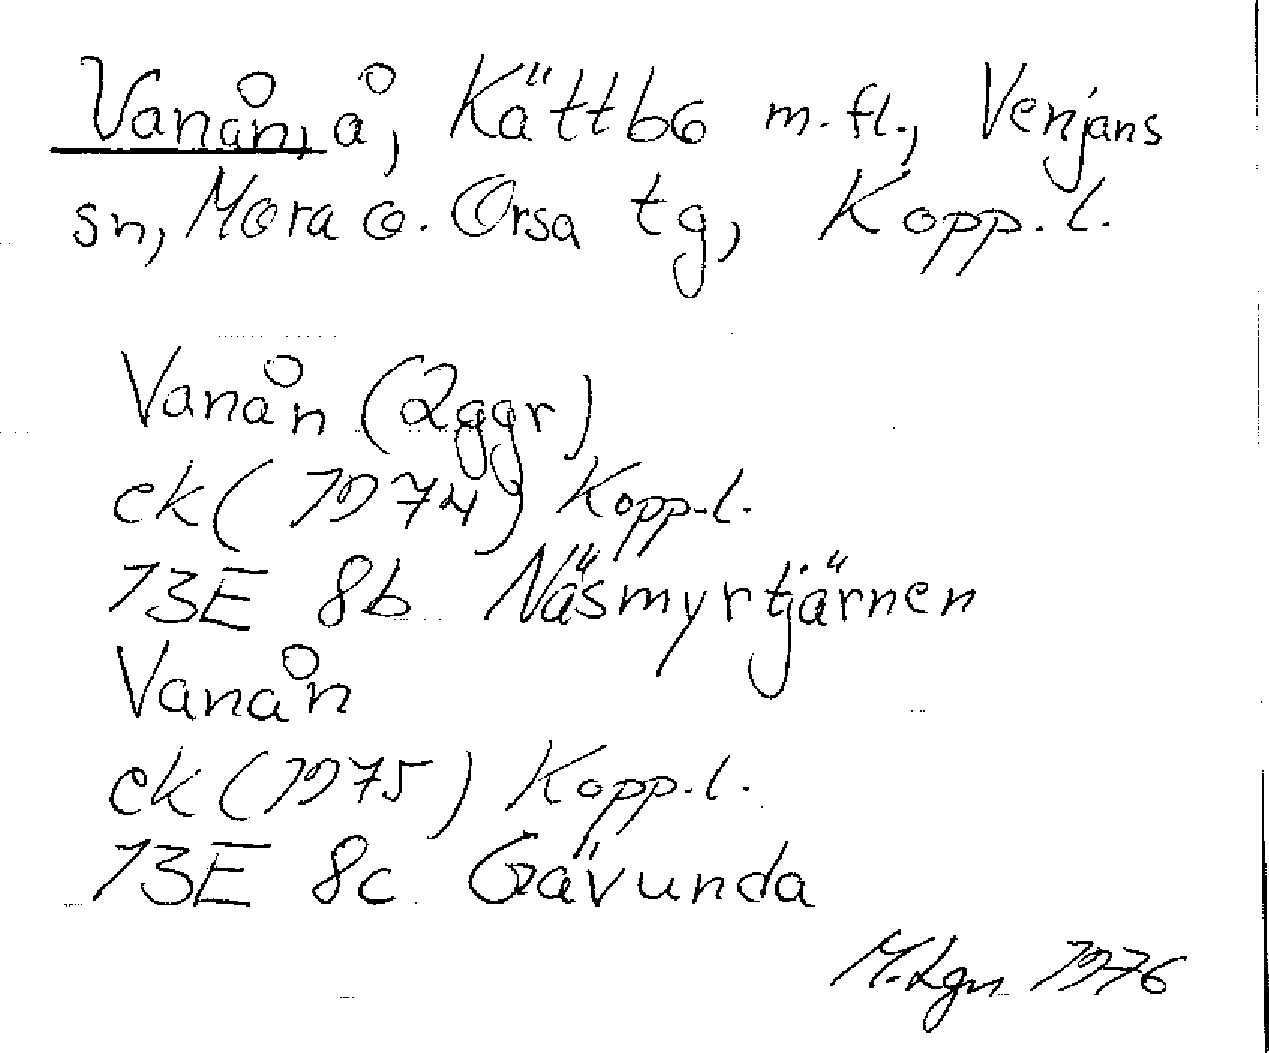 Vanån, å, Kättbo m.fl., Venjans
sn, Mora o. Orsa tg, Kopp.l.
Vanån (2ggr)
ek(1974) Kopp.l.
13E 8b Näsmyrtjärnen
Vanån
ek(1975) Kopp.l.
13E 8c Gävunda
M.Lgn 1976